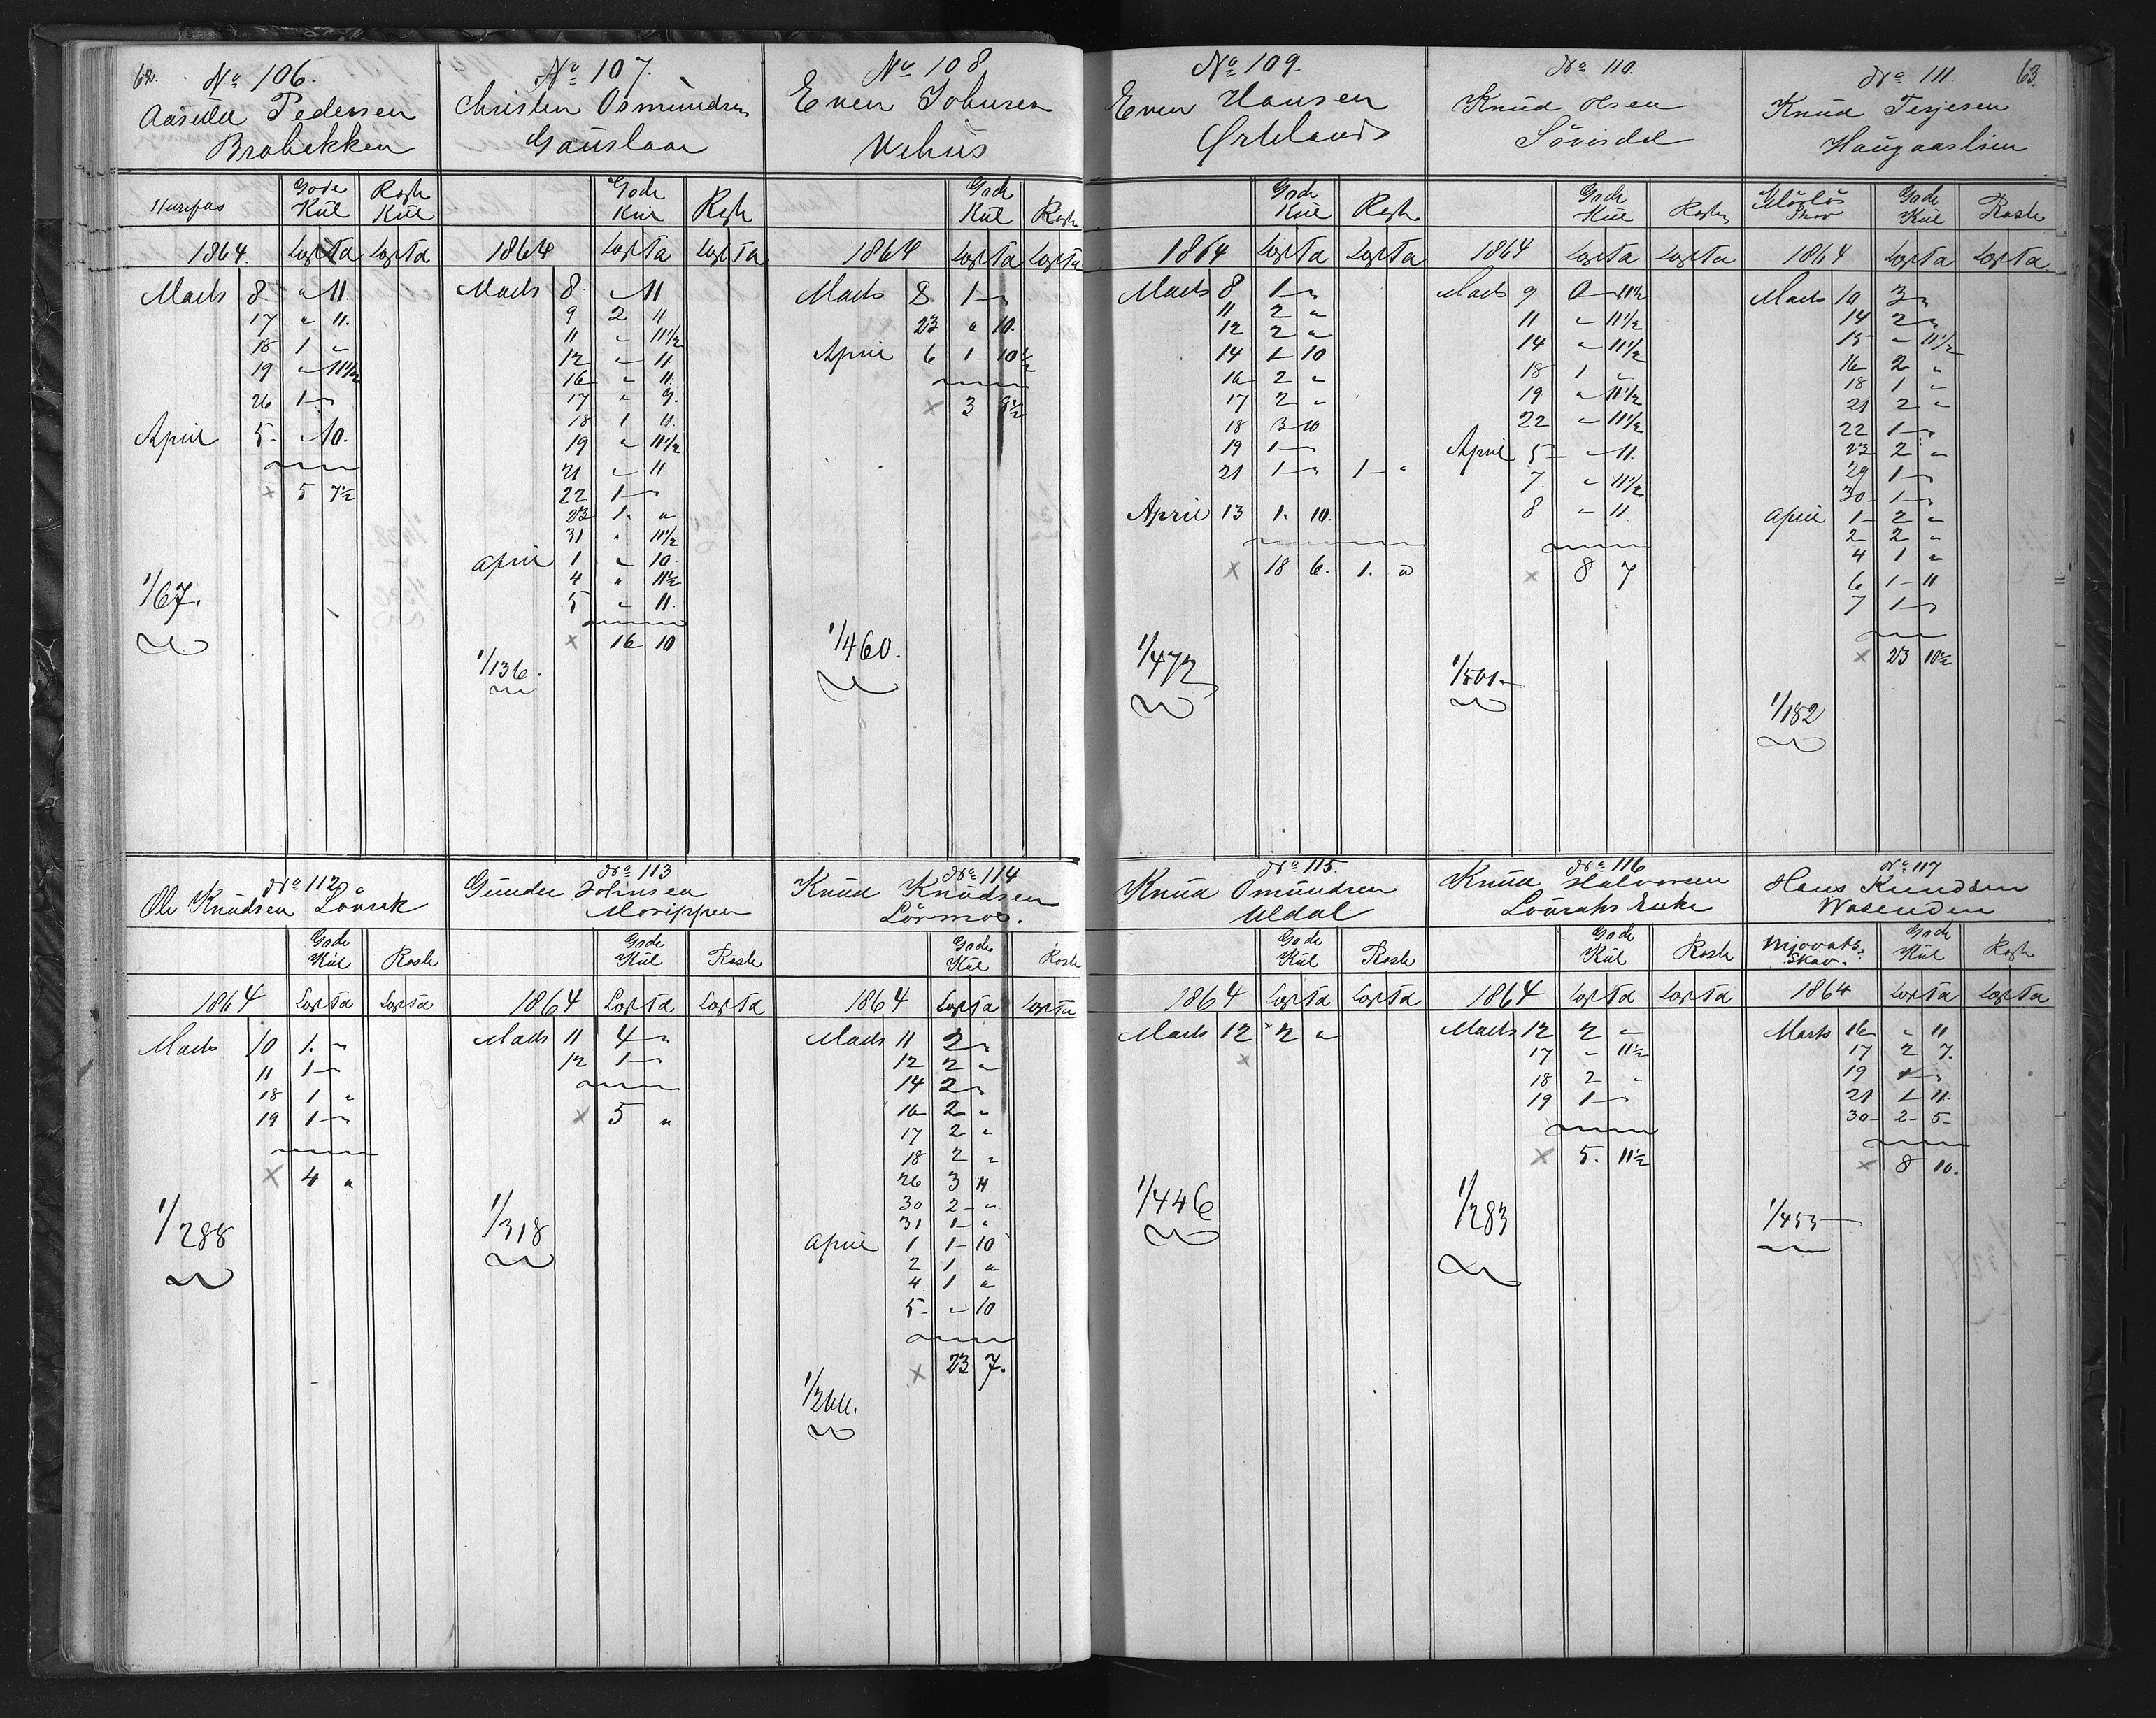 62.
No 106.
Aasuld Pedersen
Brobekken
Gode Kül
Rosk Kül
1864.
Læst Ta Læst Ta
Marts 8 " 11.
17 " 11.
18 1 "
19 " 11½
26 1 "
April 5 " 10.
× 5 7½
1/67.
No 107.
Christen Osmundsen
Gauslaae
Gode Kül
Rosk
1864
Læst Ta Læst Ta
Marts 8. " 11
9 2 "
11 " 11½
12 " 11
16 " 11.
17 " 9.
18 1 11.
19 " 11½
21 " 11
22 1 "
23 1. "
31 " 11½
April 1 " 10.
4 " 11½
5 " 11.
× 16 10
1/136.
No 108
Even Johnsen
Vehüs
Gode Kül
Rosk
1864
Læst Ta Læst Ta
Marts 8. 1 "
23 " 10.
April 6 1 10½
× 3 8½
1/460.
No 109.
Even Hansen
Gode Kül
Rosk
1864
Læst Ta Læst Ta
Marts 8 1 "
11 2 "
12 2 "
14 1 10
16 2 "
17 2 "
18 3 10
19 1 "
21 1 " 1 "
April 13 1. 10.
× 18 6. 1. "
1/472
No 110.
Knud Olsen
Sövisdal
Gode Kül
1864
Læst Ta Læst Ta
Marts 9 0 11½
11 " 11½
14 " 11½
18 1 "
19 " 11½
22 " 11½
April 5 " 11.
7. " 11½
8 " 11
× 8 7
1/501.
63.
No 111.
Knud Terjesen
Haugaaslien
Gode Kül
Rosk
1864
Læst Ta Læst Ta
Marts 10 3 "
14 2 "
15 " 11½
16 2 "
18 1 "
21 2 "
22 1 "
23 2 "
29 1 "
30 1 "
April 1 2 "
2 2 "
4 1 "
6 1 11
7 1 "
× 23 10½
1/182
No 112
Ole Knudsen Lövrek
Gode Kül
Rosk
1864
Læst Ta Læst Ta
Marts 10 1. "
11 1 "
18 1 "
19 1 "
× 4 "
1/288
No 113
Gunder Johnsen
Gode Kül
Rosk
1864
Læst Ta Læst Ta
Marts 11 4 "
12 1 "
× 5 "
1/318
No 114
Knud Knudsen
Lörmoe.
Gode Kül
Rosk
1864
Læst Ta Læst Ta
Marts 11 2 "
12 2 "
14 2 "
16 2 "
17 2 "
18 2 "
26 3 11
30 2 "
31 1 "
April 1 1 10
2 1 "
4 1 "
5 " 10
× 23 7.
No 115.
Knud Omundsen
Uldal
Gode Kül
Rosk
1864
Læst Ta Læst Ta
Marts 12 2 "
×
1/446
No 116
Knud Halvorsen
Gode Kül
Rosk
1864
Læst Ta Læst Ta
Marts 12 2 "
17 " 11½
18 2 "
19 1 "
× 5. 11½
1/283
No 117
Hans Knudsen
Wasenden
Mjovats Skov.
Gode Kül
Rosk
1864
Læst Ta Læst Ta
Marts 16 " 11
17 2 7.
19 1 "
21 1 11.
30 2 5
× 8 10.
1/453